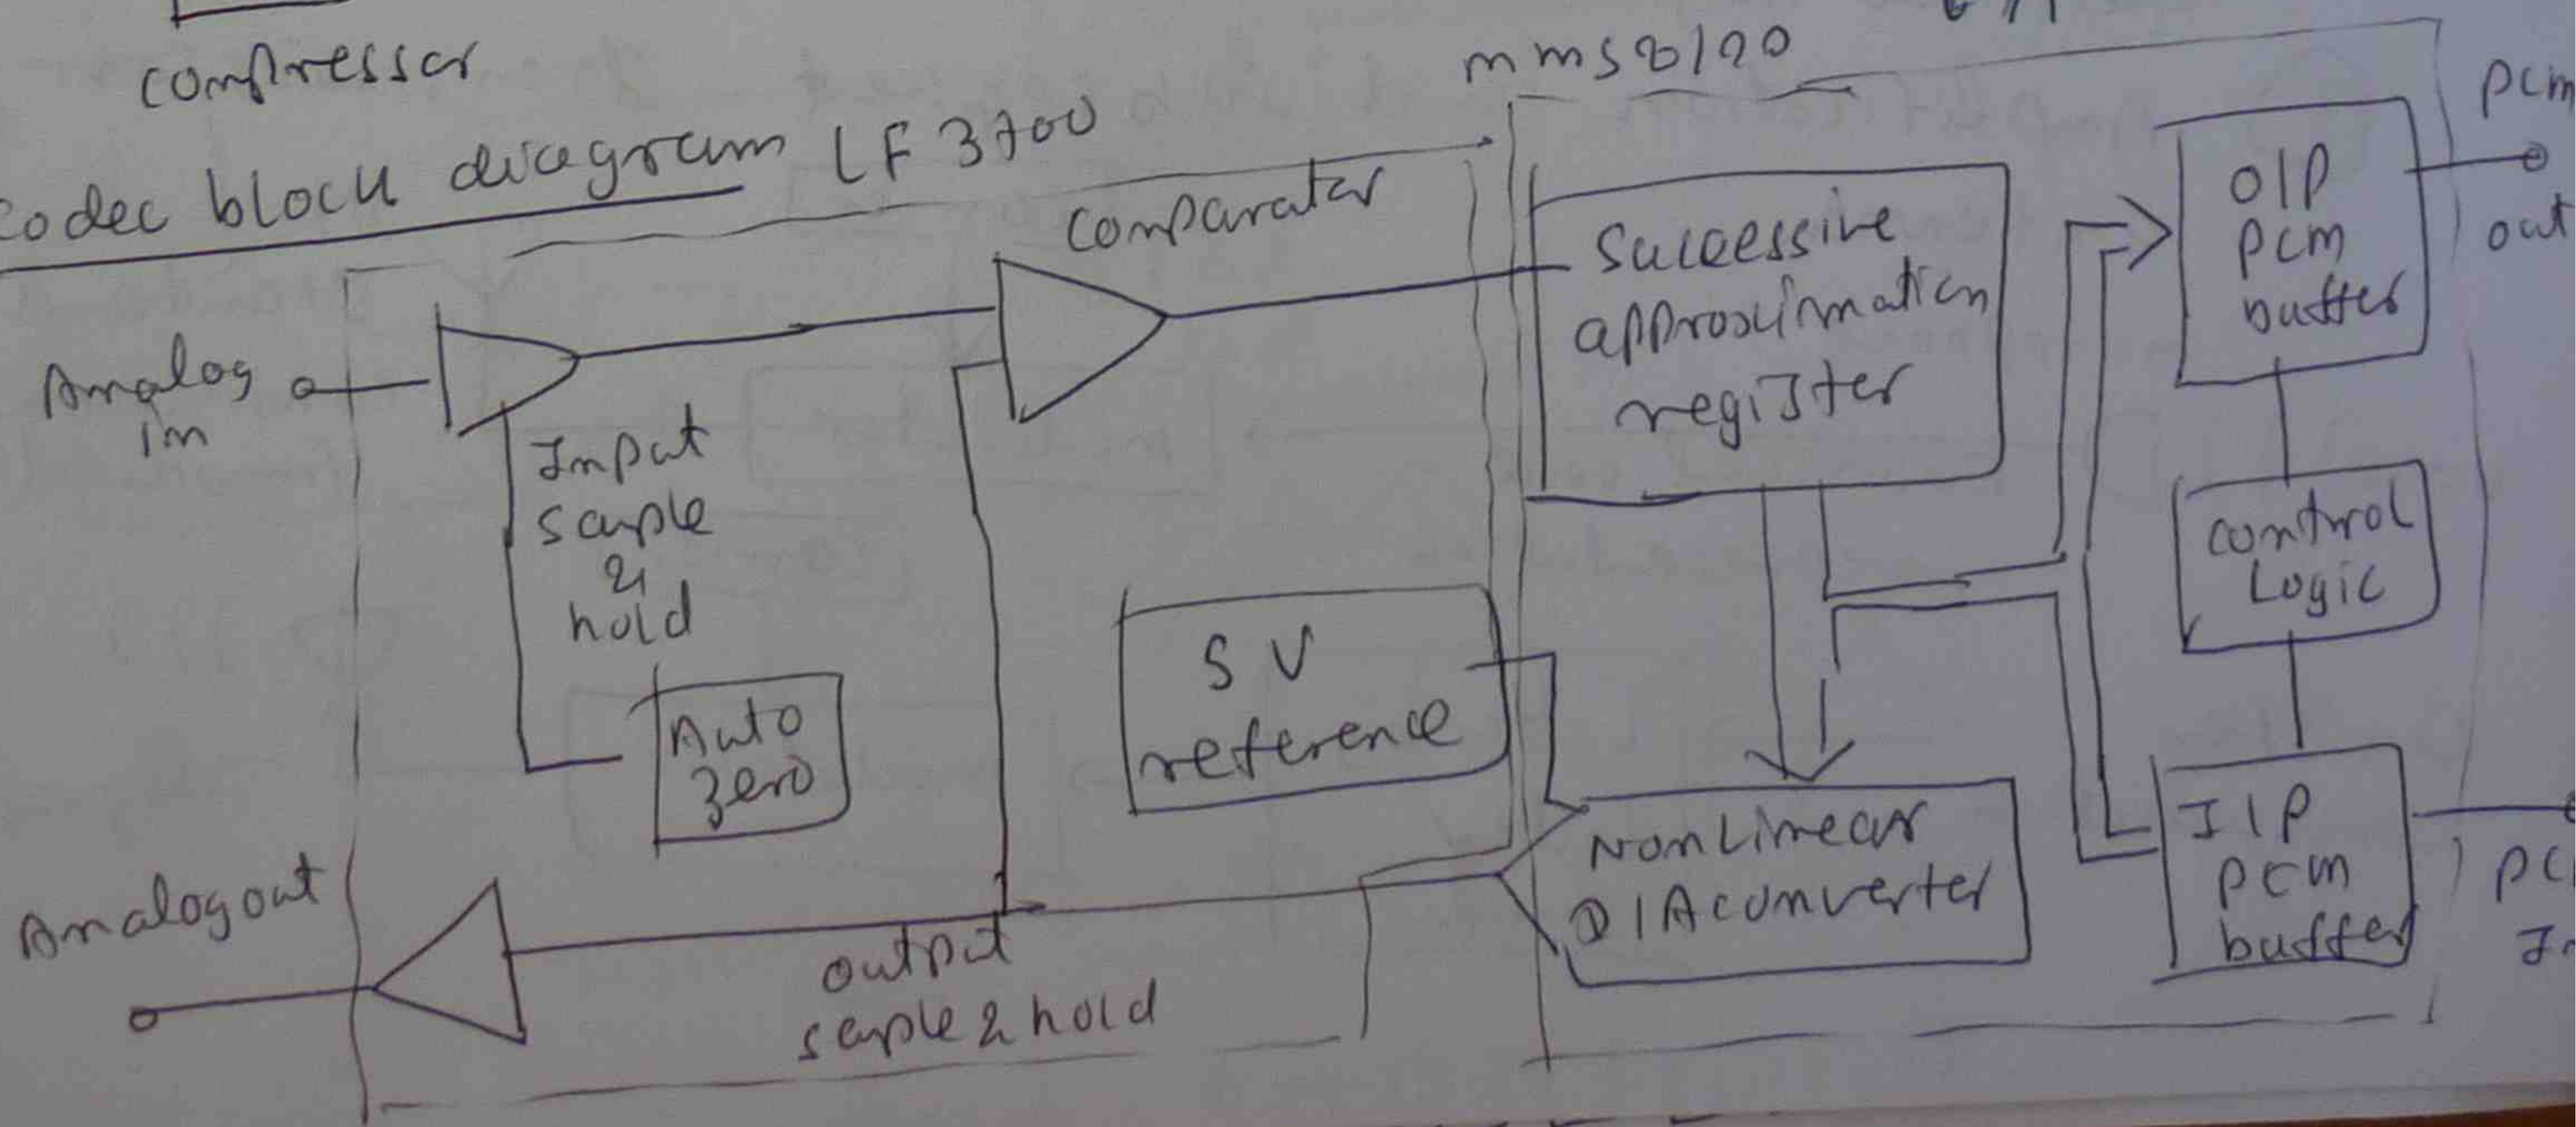 compressor
codec block diagram LF 3700
mms8100
Comparator
Analog
in
Input
sample
&
hold
Auto
zero
Successive
approximation
register
O/P
pcm
buffer
pcm
out
control
Logic
5 V
reference
Non Linear
D/A converter
I/P
pcm
buffer
Analog out
output
sample & hold